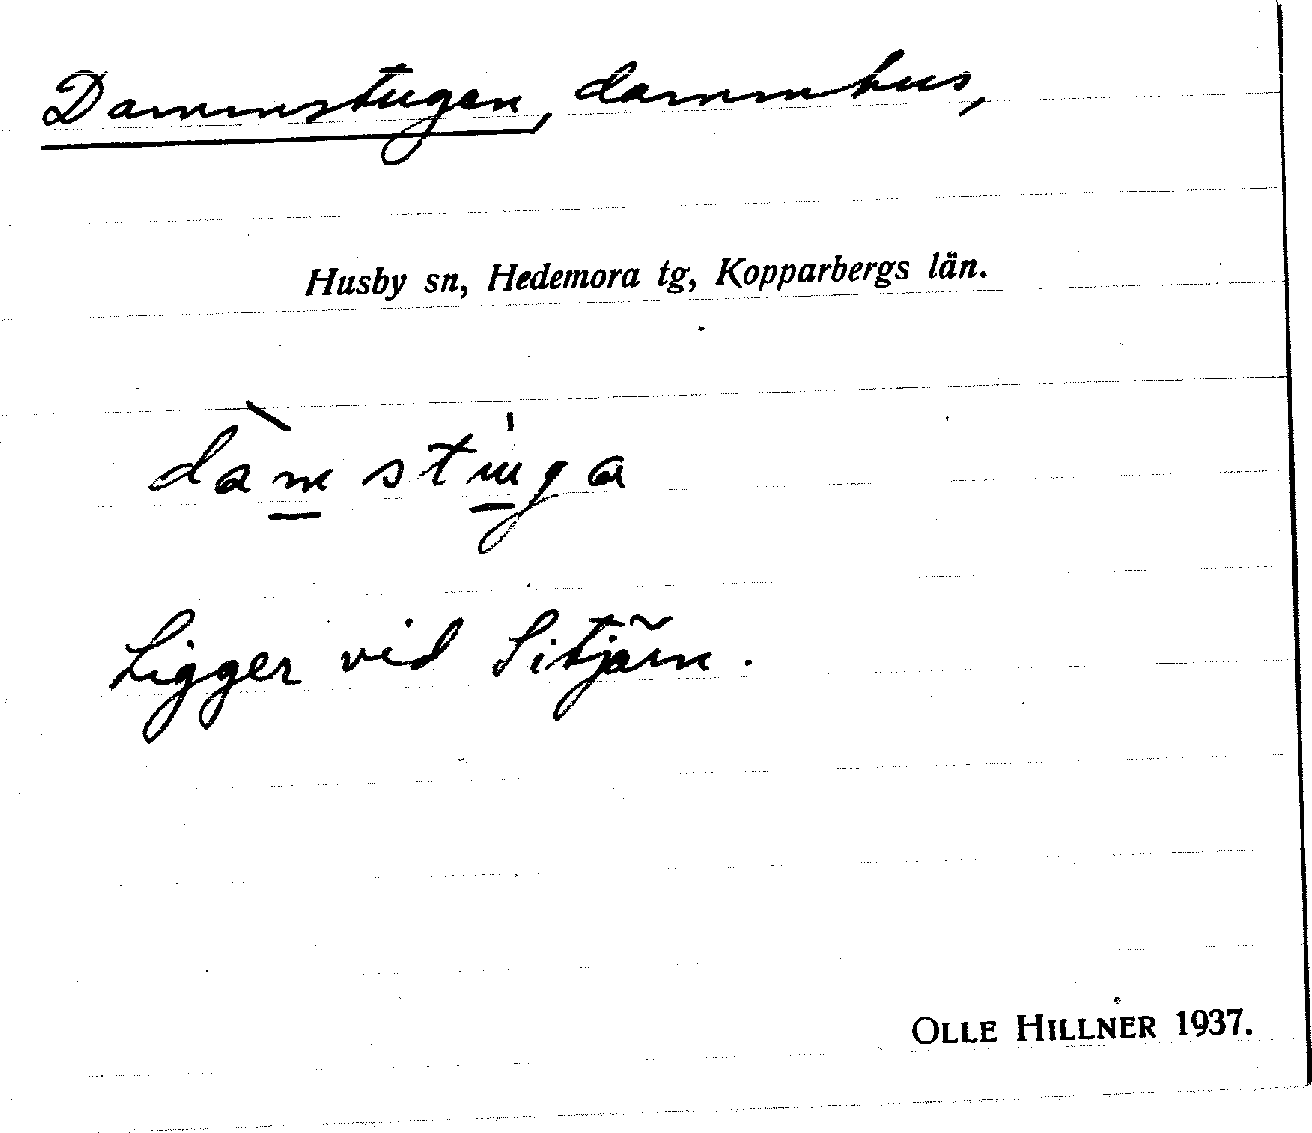 Dammstugan, dammhus,
Husby sn, Hedemora tg, Kopparbergs län.
dàm̲ stu̲̍ga
Ligger vid Sitjärn.
OLLE HILLNER 1937.